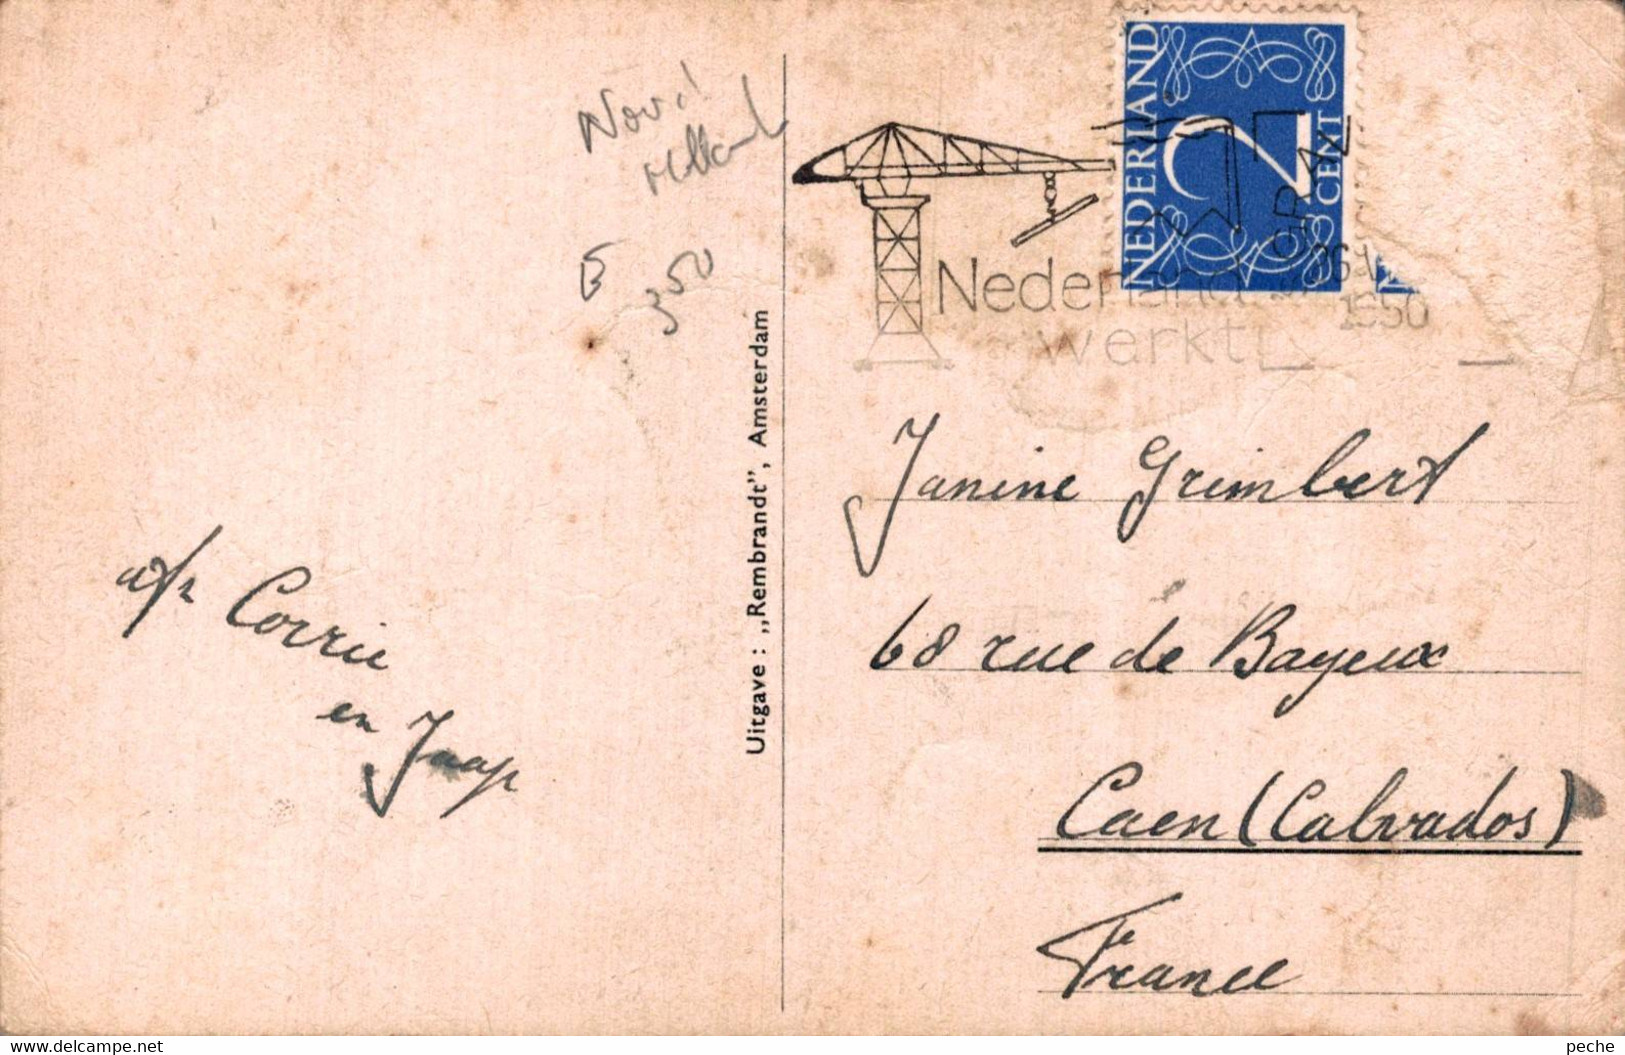 Holland
350
Uitgave : „Rembrandt”, Amsterdam
afz Corrie
en Jaap
NEDERLAND
2
CENT
'S-GRAV
1950
Nederland
werkt
Janine Grimbert
68 rue de Bayeux
Caen (Calvados)
France
delcampe.net
peche